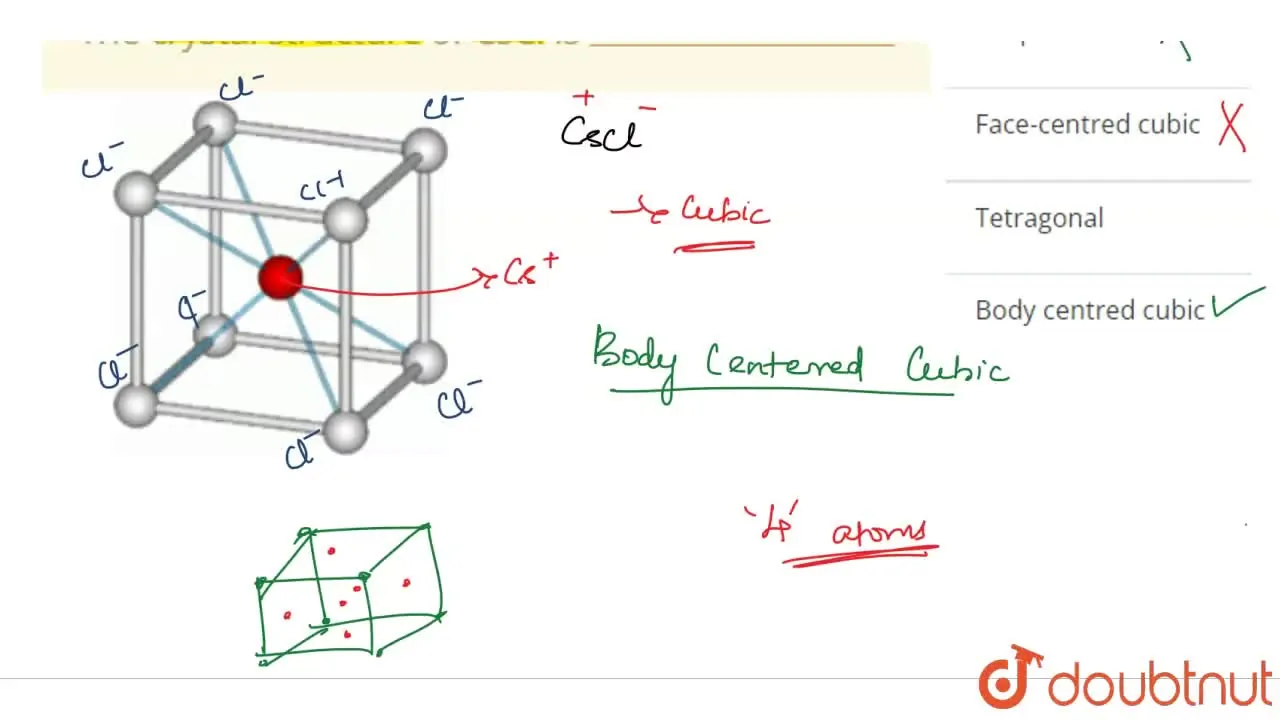 The crystal structure of CsCl is
Cl⁻
Cl⁻
Cl⁻
Cl⁻
+ −
CsCl
Face-centred cubic X
→ Cubic
Tetragonal
→ Cs⁺
Cl⁻
Body centred cubic ✓
Body Centerred Cubic
Cl⁻
Cl⁻
Cl⁻
'4' atoms
doubtnut